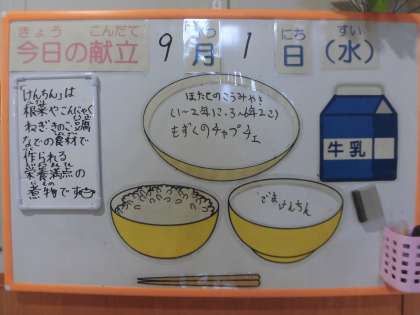 きょう こんだて がつ にち すい
今日の献立 9月1日(水)
「けんちん」は
根菜やこんにゃく
ねぎきのこ豆腐
などの食材で
作られる
栄養満点の
煮物です
ほたてのこうみやき
(1〜2年1こ・3〜6年2こ)
もずくのチャプチェ
ごまけんちん
牛乳